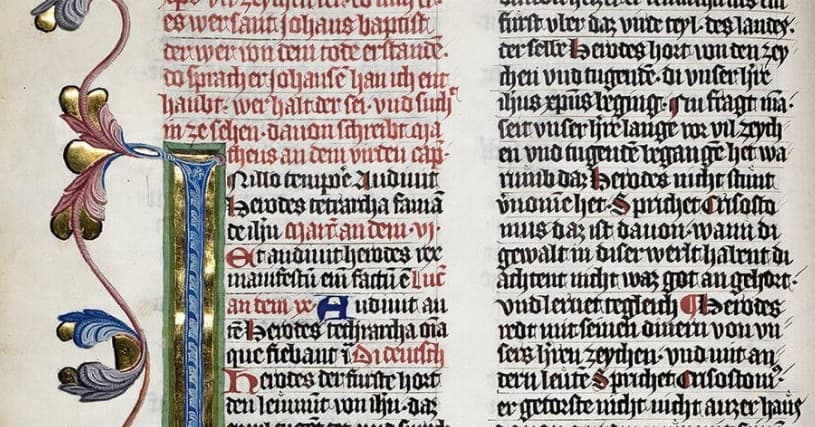 es wer sant Johans baptist
der wer von dem tode erstandē.
do sprach er Johansē han ich ent
haubt. wer halt der sei. vnd such
in ze sehen. dauon schreibt ma
theus an dem virden cap.
In illo tempore Audiuit
Herodes tetrarcha famā
de ihū Marc an dem vi.
Et audiuit herodes rex
manifestū eīm factū ē Luc
an dem xe Audiuit au
tē Herodes tethrarcha oīa
que fiebant ī Di deutsch
Herodes der furste hort
den leinunt von ihu. daz
furst vber daz virde teyl. des landes.
der selle Herodes hort von den zey
chen vnd tugentē. di vnser hre
ihus xpūs begnig. Nu fragt mā.
seit vnser hre lange vor vil zeych
en vnd tugentē begangē het wa
rūmb daz Herodes nicht
vnomē het. Sprichet Crisosto
mus daz ist dauon. wann di
gewalt in diser werlt habent di
achtent nicht waz got an gehort.
vnd lernet tegleich Herodes
redt mit seinen dinern von vn
sers hren zeychen. vnd mit an
dern leutē Sprichet Crisostom
er getorste nicht nicht auzer hauz